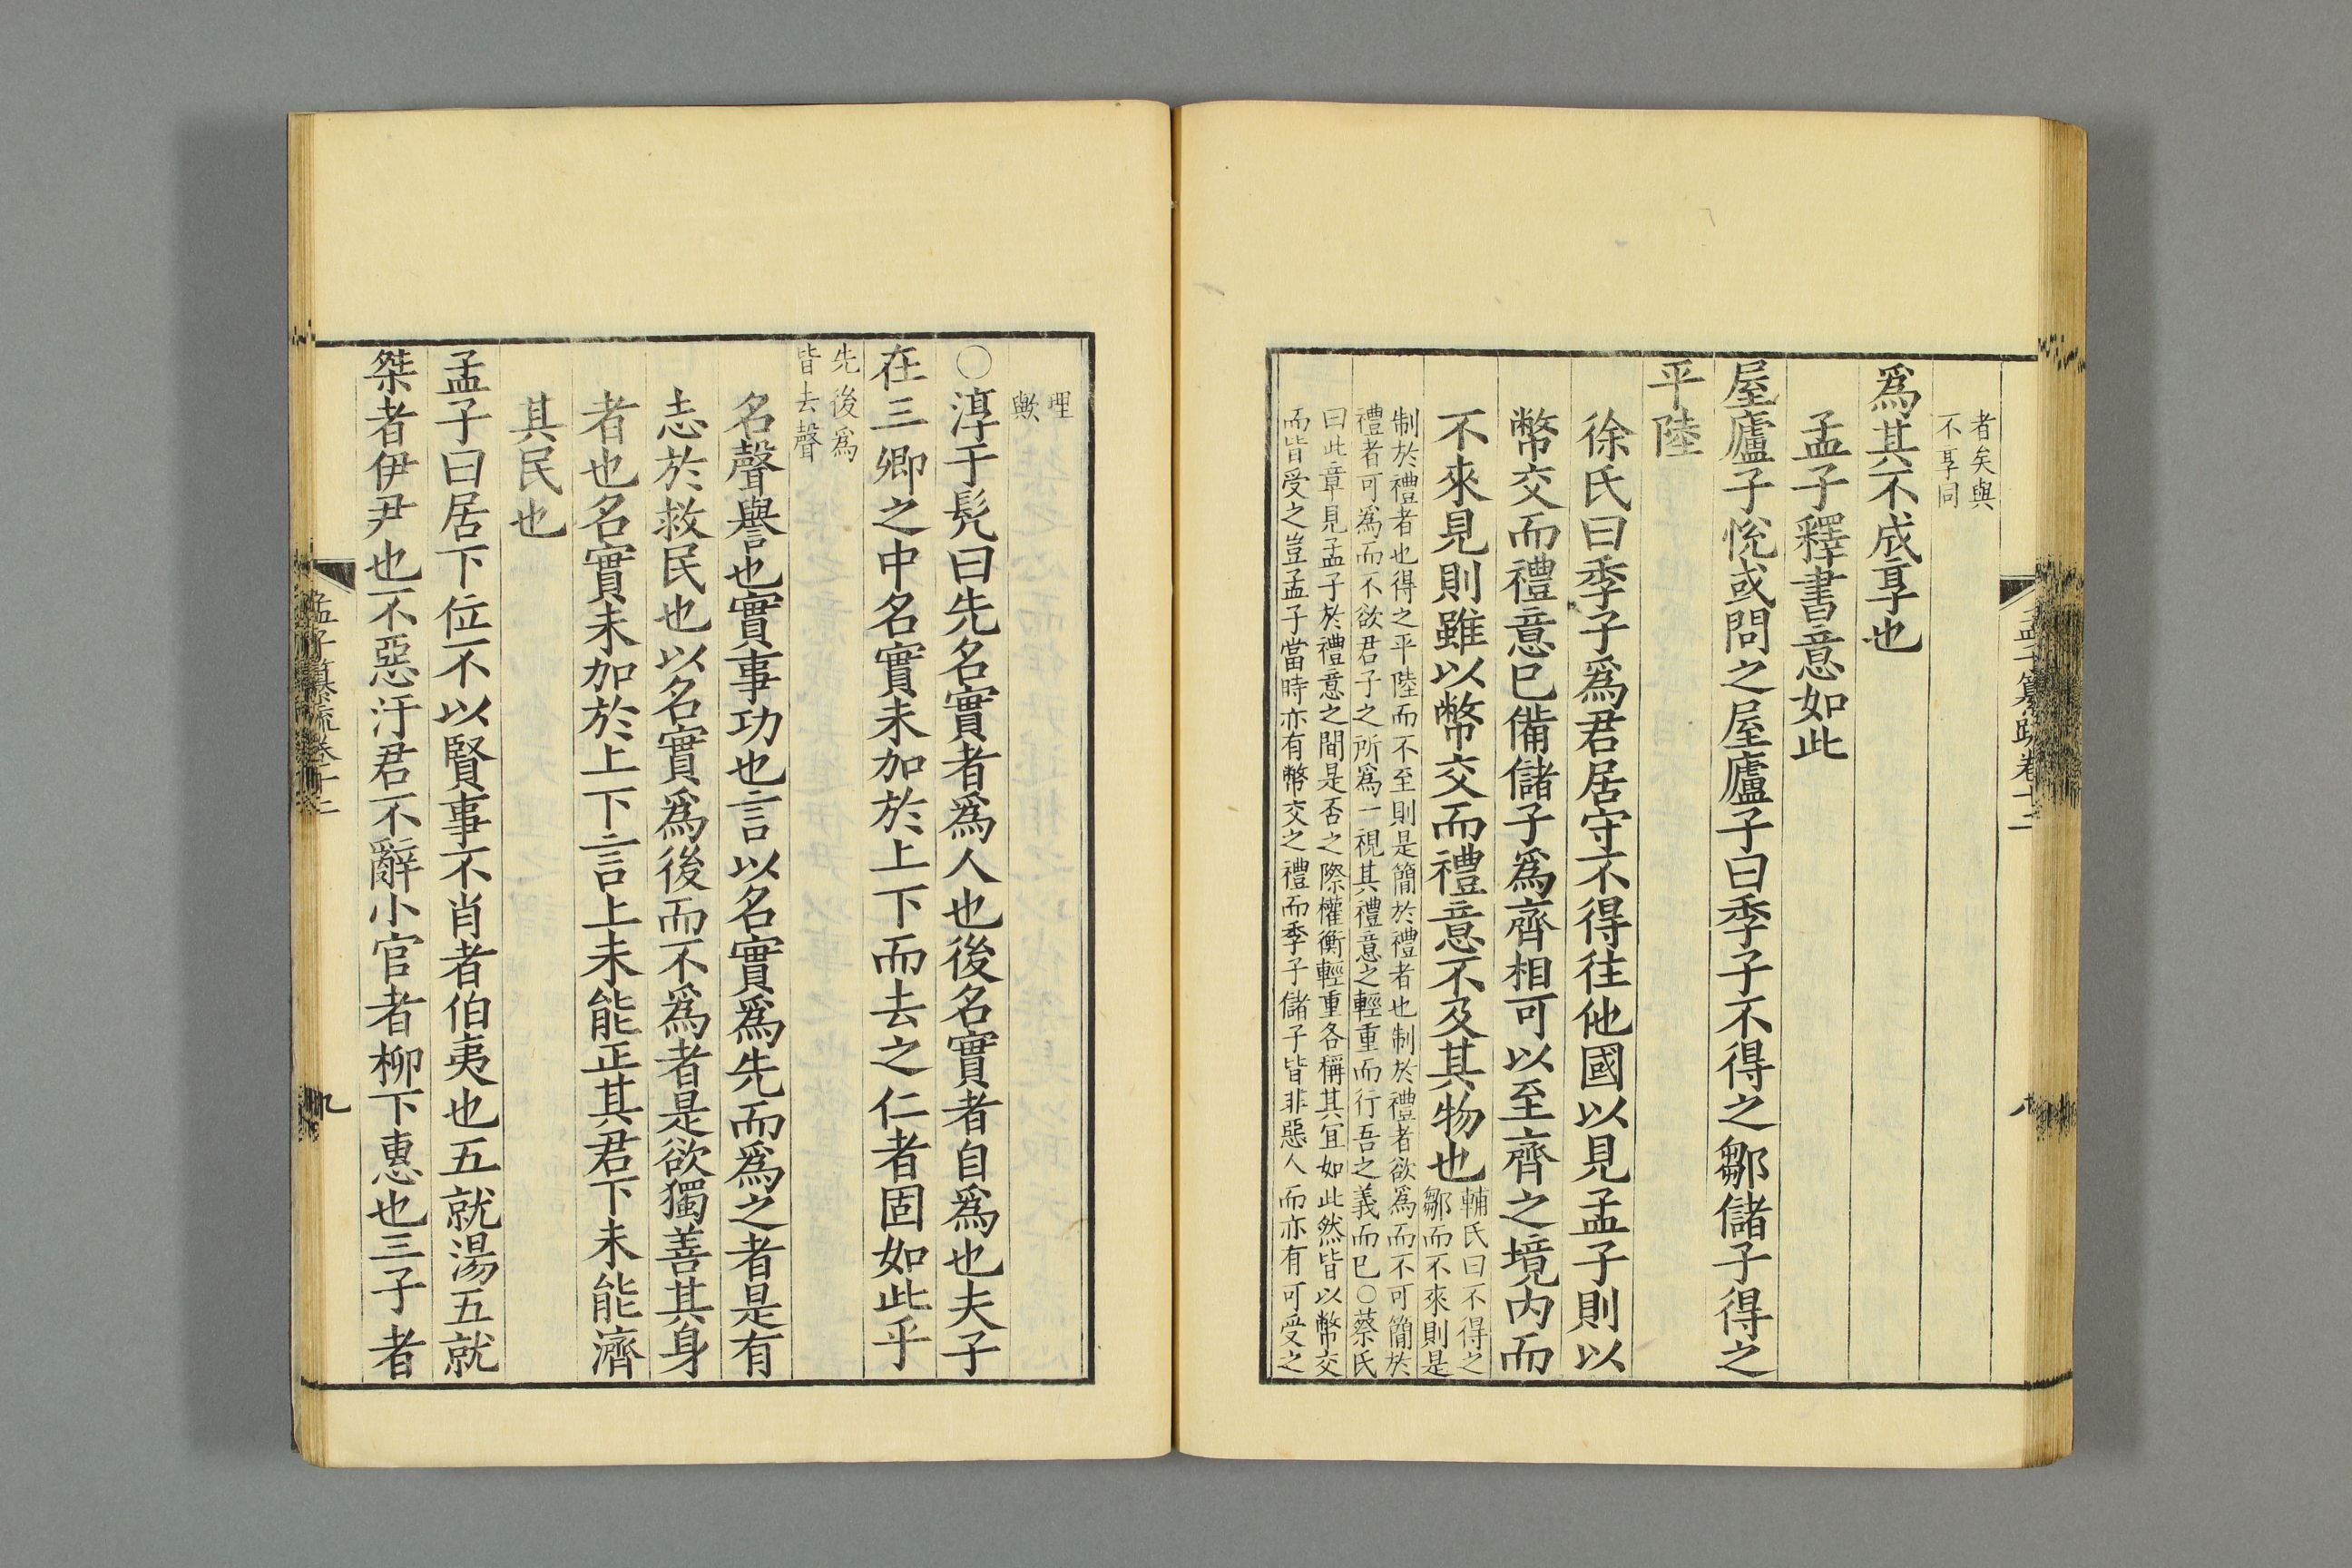 孟子纂疏卷十二
八
者矣與
不享同
爲其不成享也
孟子釋書意如此
屋廬子悅或問之屋廬子曰季子不得之鄒儲子得之
平陸
徐氏曰季子爲君居守不得往他國以見孟子則以
幣交而禮意已備儲子爲齊相可以至齊之境內而
不來見則雖以幣交而禮意不及其物也
輔氏曰不得之
鄒而不來則是
制於禮者也得之平陸而不至則是簡於禮者也制於禮者欲爲而不可簡於
禮者可爲而不欲君子之所爲一視其禮意之輕重而行吾之義而已○蔡氏
曰此章見孟子於禮意之間是否之際權衡輕重各稱其宜如此然皆以幣交
而皆受之豈孟子當時亦有幣交之禮而季子儲子皆非惡人而亦有可受之
理
歟
○淳于髡曰先名實者爲人也後名實者自爲也夫子
在三卿之中名實未加於上下而去之仁者固如此乎
先後爲
皆去聲
名聲譽也實事功也言以名實爲先而爲之者是有
志於救民也以名實爲後而不爲者是欲獨善其身
者也名實未加於上下言上未能正其君下未能濟
其民也
孟子曰居下位不以賢事不肖者伯夷也五就湯五就
桀者伊尹也不惡汙君不辭小官者柳下惠也三子者
孟子纂疏卷十二
九